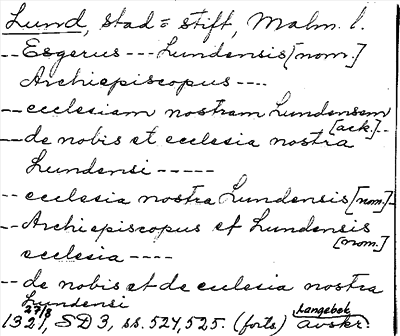 Lund, stad = stift, Malm. l.
-- Esgerus --- Lundensis [nom.]
Archiepiscopus ----
-- ecclesiam nostram Lundensem [ack.] --
-- de nobis et ecclesia nostra
Lundensi -----
-- ecclesia nostra Lundensis [nom.] -
-- Archiepiscopus et Lundensis [nom.]
ecclesia ----
-- de nobis et de ecclesia nostra
Lundensi
27/8 1321, SD 3, ss. 524, 525. (forts.) Langebek avskr.